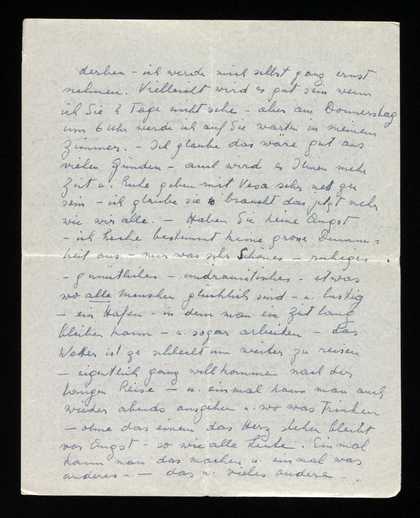 derben - ich werde mich selbst ganz ernst
nehmen. Vielleicht wird es gut sein wenn
ich Sie 2 Tage nicht sehe - aber am Donnerstag
um 6 Uhr werde ich auf Sie warten in meinem
Zimmer. - Ich glaube das wäre gut aus
vielen Gründen - auch wird es Ihnen mehr
Zeit u. Ruhe geben mit Vera sehr nett zu
sein - ich glaube sie braucht das jetzt mehr
wie wir alle. - Haben Sie keine Angst
- ich hecke bestimmt keine grosse Dumm-
heit aus - nur was sehr Schönes - ruhiges
- gemütliches - undramatisches - etwas
wo alle Menschen glücklich sind - u. lustig
- ein Hafen - in dem man ein Zeit lang
bleiben kann - u. sogar arbeiten - Das
Wetter ist zu schlecht um weiter zu reisen
- eigentlich ganz willkommen nach der
langen Reise - u. einmal kann man auch
wieder abends ausgehen u. wo was Trinken
- ohne das einem das Herz stehen bleibt
vor Angst - so wie alle Leute. Einmal
kann man das machen u. einmal was
anderes - - das u. vieles andere -